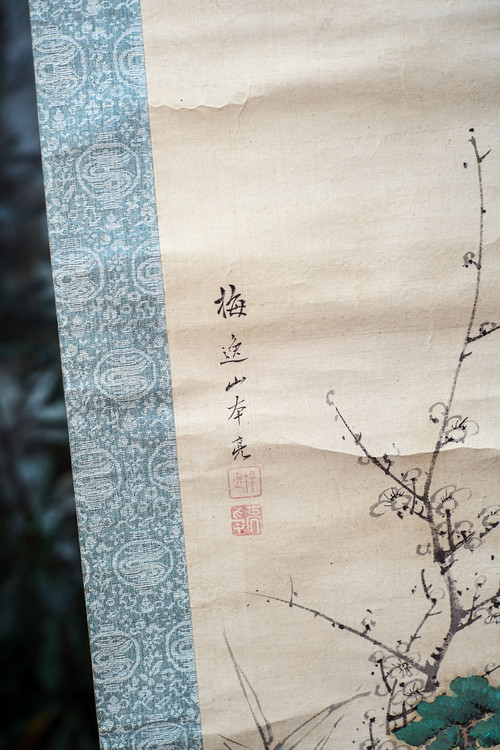 梅逸山本亮